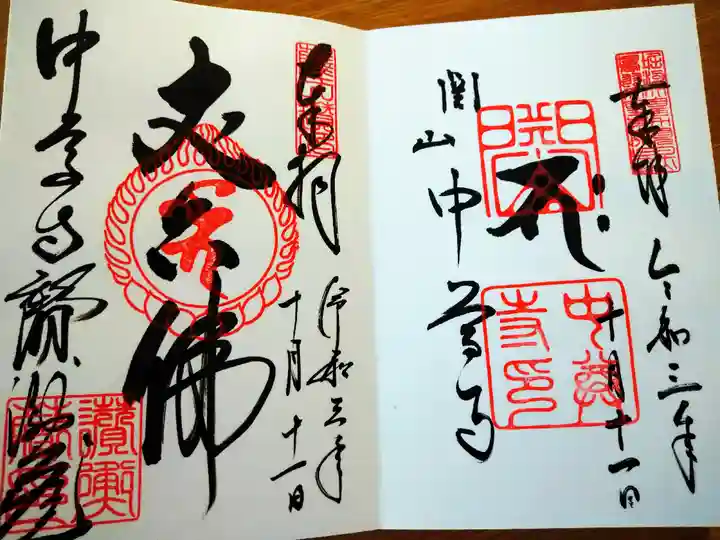 奉拝 令和三年
十月十一日
関山 中尊寺
中尊寺印
奉拝 令和三年
十月十一日
丈六佛
中尊寺讃衡蔵
讃衡蔵